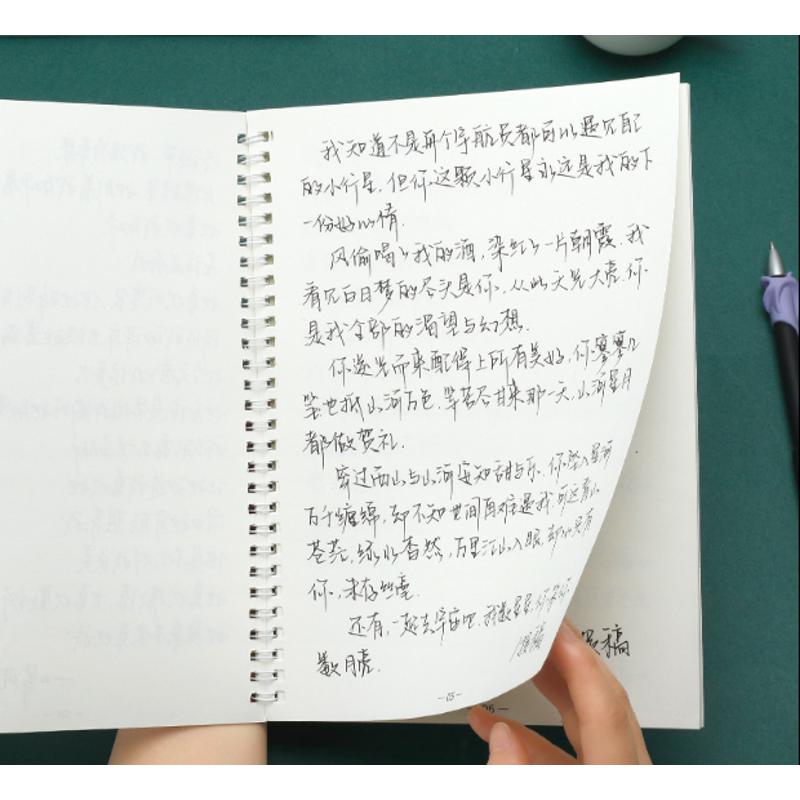 我知道不是每个宇航员都可以遇见自己
的小行星,但你这颗小行星永远是我的下
一份好心情.
风偷喝了我的酒,染红了一片朝霞.我
看见白日梦的尽头是你,从此天光大亮.你
是我全部的渴望与幻想.
你逆光而来配得上所有美好,你寥寥几
笔也抵山河万色,等苦尽甘来那一天,山河星月
都做贺礼.
穿过西山与山河安知甜与乐.你坠入星河
万千缠绵,却不知世间再难遇我.可远看山
苍茫,绿水杳然,万里江山入眼,却只有
你,未存
还有,一起去宇宙吧,我数星星,你
数月亮.
稿
-03-